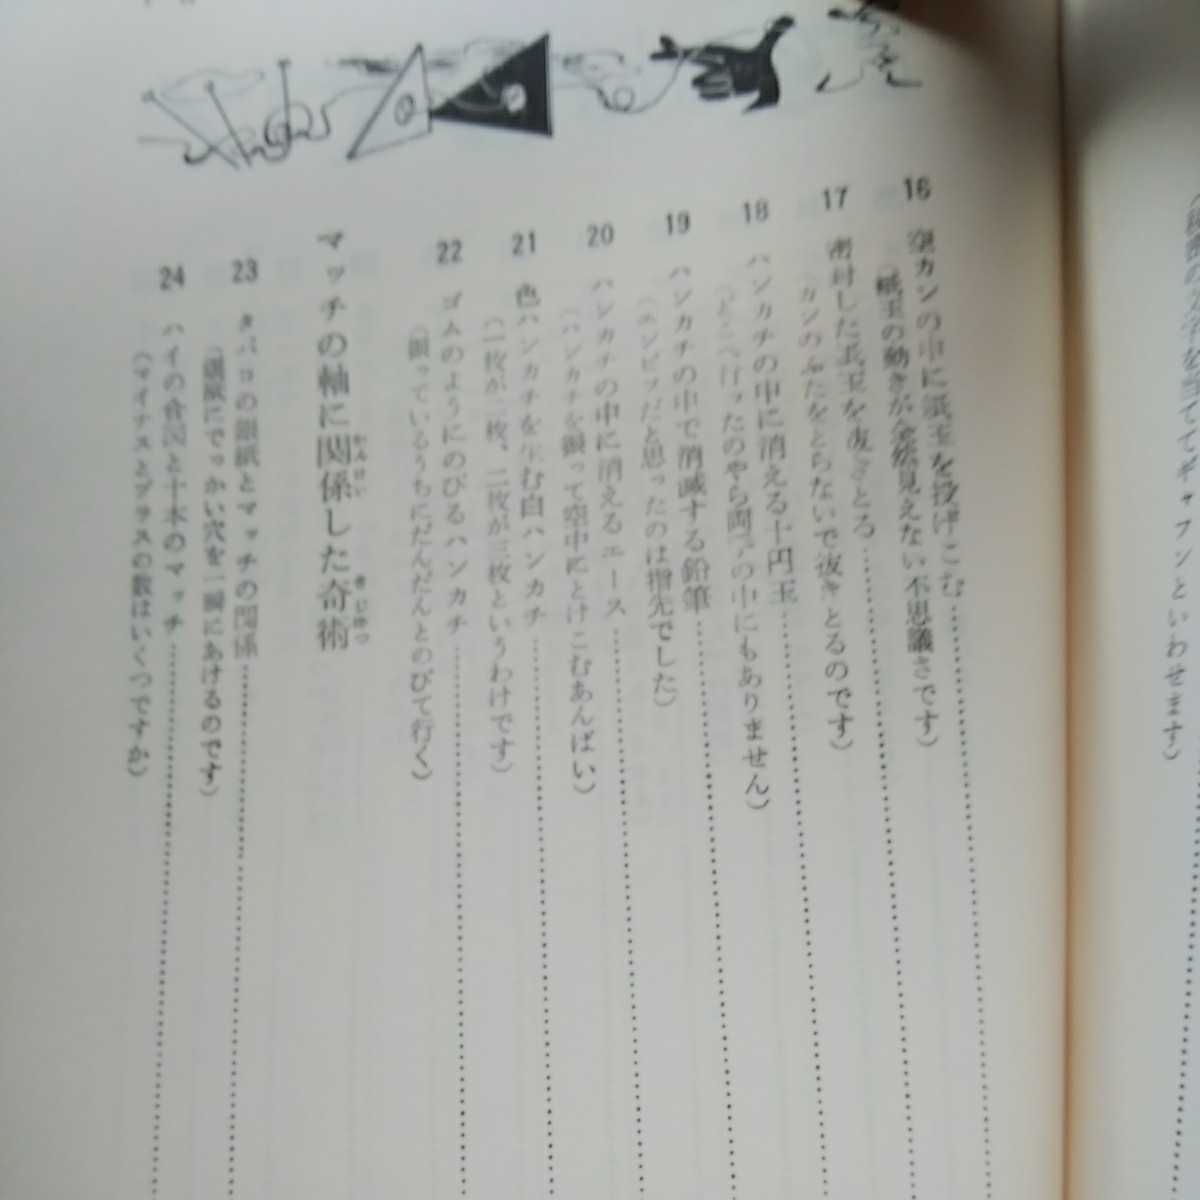 て、ギャフンといわせます）
16 空カンの中に紙玉を投げこむ
（紙玉の動きが全然見えない不思議さです）
17 密封した玉を抜きとる
（カンのふたをとらないで抜きとるのです）
18 ハンカチの中に消える十円玉
（どこへ行ったのやら両手の中にもありません）
19 ハンカチの中で消滅する鉛筆
（エンピツだと思ったのは指先でした）
20 ハンカチの中に消えるエース
（ハンカチを振って空中にとけこむあんばい）
21 色ハンカチを生む白ハンカチ
（一枚が二枚、二枚が三枚というわけです）
22 ゴムのようにのびるハンカチ
（振っているうちにだんだんとのびて行く）
マッチの軸に関係した奇術
かんけい きじゅつ
23 タバコの銀紙とマッチの関係
（銀紙にでっかい穴を一瞬にあけるのです）
24 ハイの合図と十本のマッチ
（マイナスとプラスの数はいくつですか）